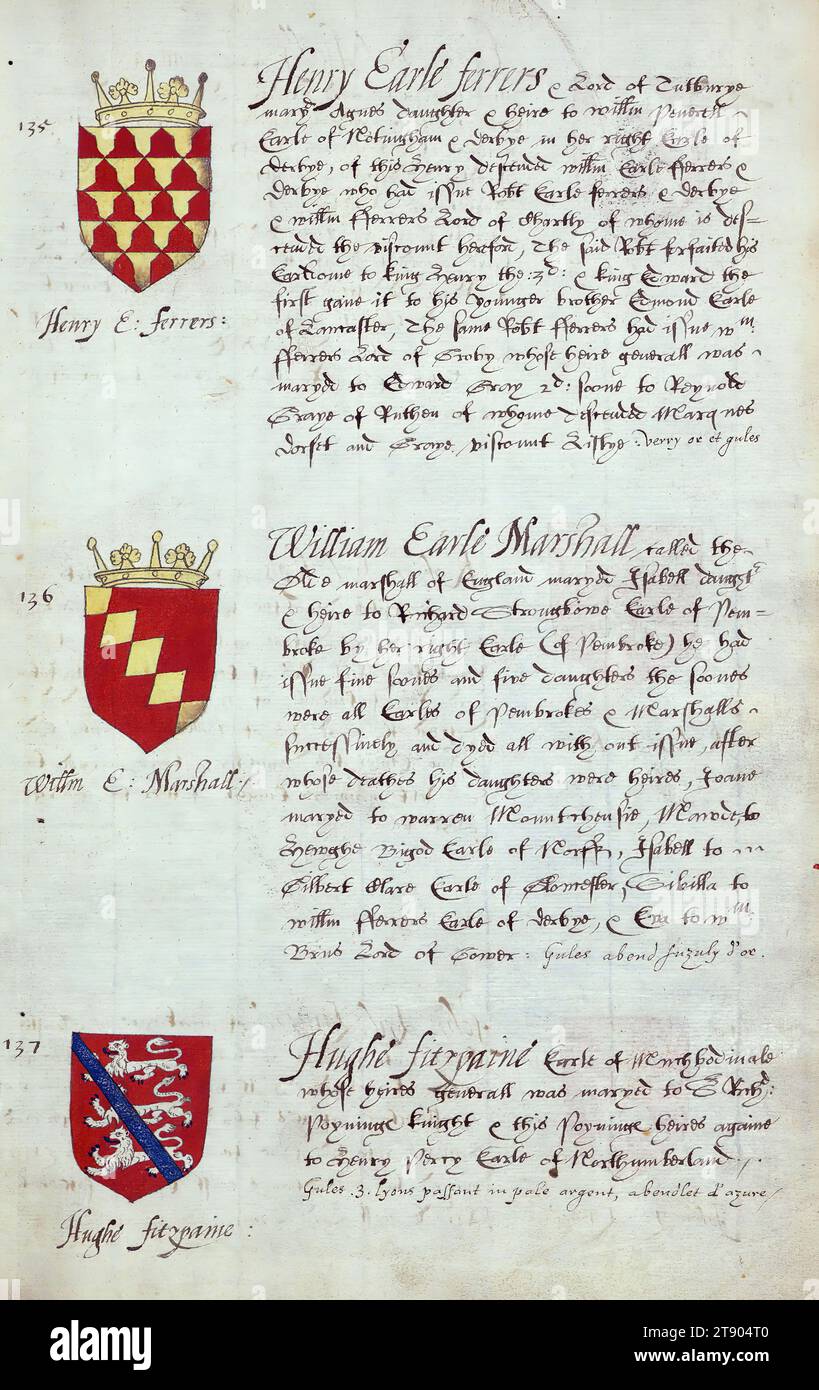 135
Henry Earle ferrers & Lord of Tutburye
maryd Agnes daughter & heire to willm Peverell
Earle of Notingham & derbye in her right Earle of
derbye, of this Henry descended willm Earle fferrers &
derbye who had issue Robt Earle ferrers & derbye
& willm fferrers Lord of Chartly of whome is des=
cended the viscount hereford, The said Robt forfaited his
Earldome to king Henry the :3d: & king Edward the
first gaue it to his younger brother Edmond Earle
of Lancaster, The same Robt fferrers had issue wm
fferrers Lord of Groby whose heire generall was
maryd to Edward Gray 2d: soone to Reynold
Graye of Ruthen of whome descended Marques
dorset and Graye viscount Lislye : verry or et gules
Henry E: ferrers:
136
William Earle Marshall called the
Olde marshall of England maryd Isabell daughtr
& heire to Richard Strongbowe Earle of Pem=
broke by her right Earle (of Pembroke) he had
issue fiue soones and five daughters the soones
were all Earles of Pembrokes & Marshalls
successiuely and dyed all with out issue, after
whose deathes his daughters were heires, Joane
maryed to warren Mountchensie, Mawde to
Hewghe Bigod Earle of Norff, Isabell to
Gilbert Clare Earle of Glocester, Sibilla to
willm fferrers Earle of derbye, & Eva to wm
Brus Lord of Gower: Gules abend fuzuly d'or.
Willm E: Marshall:
137
Hughe fitzpaine Earle of
whose heires generall was maryed to S Richd:
Poyninge knight & this Poyninge heires againe
to Henry Percy Earle of Northumberland
Gules .3. lyons passant in pale argent, abendlet d'azure
Hughe fitzpaine:
alamy
alamy
Image ID: 2T904T0
www.alamy.com